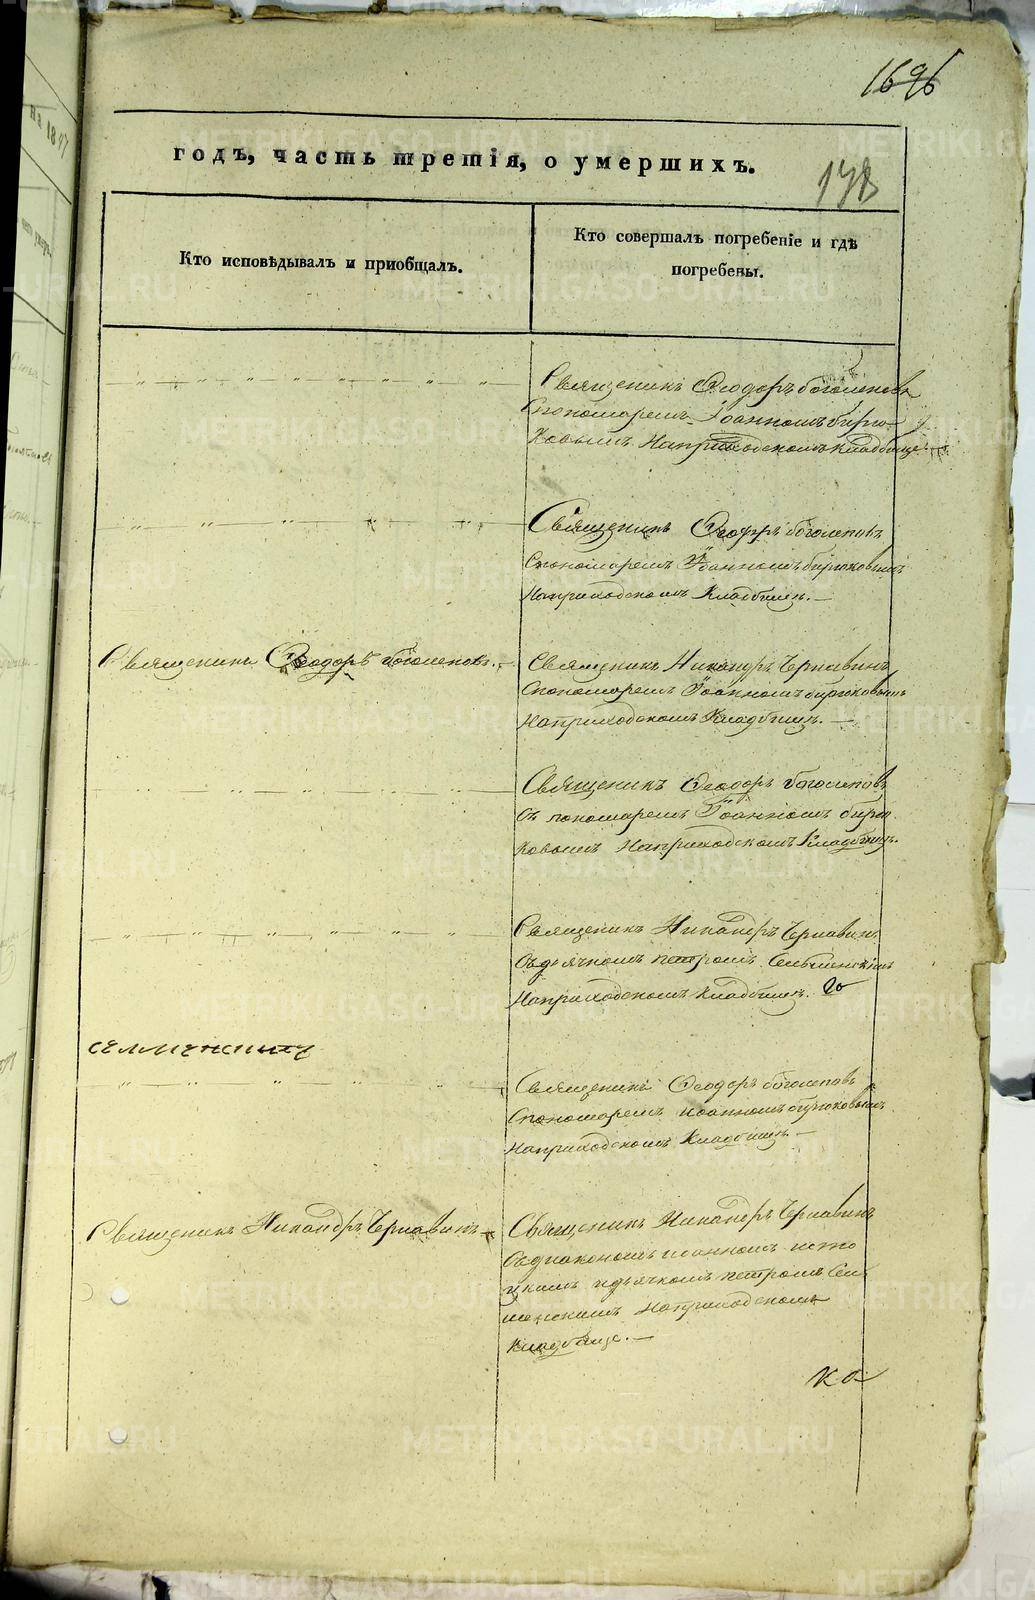 1696
годъ, часть третія, о умершихъ.
178
Кто исповѣдывалъ и приобщалъ.
Кто совершалъ погребеніе и гдѣ
погребены.
Священникъ Ѳеодоръ боголеповъ
Спономаремъ Іоанномъ бирю-
ковымъ Наприходскомъ кладбище.
Священникъ Ѳеодоръ боголеповъ
Спономаремъ Іоанномъ бирюковымъ
Наприходскомъ Кладбищѣ.
Священникъ Ѳеодоръ боголеповъ.
Священникъ Никандръ Чернавинъ
Спономаремъ Іоанномъ бирюковымъ
Наприходскомъ Кладбищѣ.
Священникъ Ѳеодоръ боголеповъ
съ пономаремъ Іоанномъ бирю
ковымъ Наприходскомъ Кладбищѣ.
Священникъ Никандръ Чернавинъ
съдьячкомъ петромъ
Наприходскомъ кладбищѣ.
Священникъ Ѳеодоръ боголеповъ
Спономаремъ иоанномъ бирюковымъ
Наприходскомъ Кладбищѣ
Священникъ Никандръ Чернавинъ
Священникъ Никандръ Чернавинъ
съдиакономъ иоанномъ
идьячкомъ петромъ Сел
менскимъ Наприходскомъ
кладбище.
METRIKI.GASO-URAL.RU